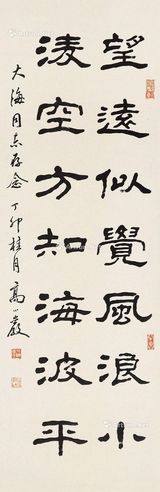 望遠似覺風浪小
淩空方知海波平
大海同志存念 丁卯桂月 高小巖